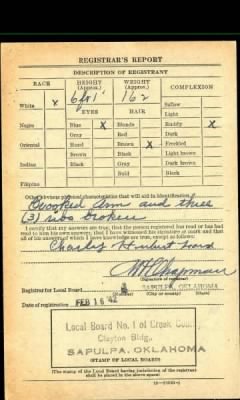 REGISTRAR'S REPORT
DESCRIPTION OF REGISTRANT
RACE
HEIGHT (Approx.)
WEIGHT (Approx.)
COMPLEXION
6 ft 1" 162
White X
Sallow
EYES HAIR
Light
Negro Blue X Blonde Ruddy X
Gray Red Dark
Oriental Hazel Brown X Freckled
Brown Black Light brown
Indian Black Gray Dark brown
Bald Black
Filipino
Other obvious physical characteristics that will aid in identification
Crooked Arm and three
(3) ribs broken
I certify that my answers are true; that the person registered has read or has had
read to him his own answers; that I have witnessed his signature or mark and that
all of his answers of which I have knowledge are true, except as follows:
Charley Hurbert
W H Chapman
Registrar for Local Board
SAPULPA, OKLAHOMA
(City or county)
Date of registration FEB 16 42
Local Board No. 1 of Creek Coun
Clayton Bldg.,
SAPULPA, OKLAHOMA
(STAMP OF LOCAL BOARD)
(The stamp of the Local Board having jurisdiction of the registrant
shall be placed in the above space)